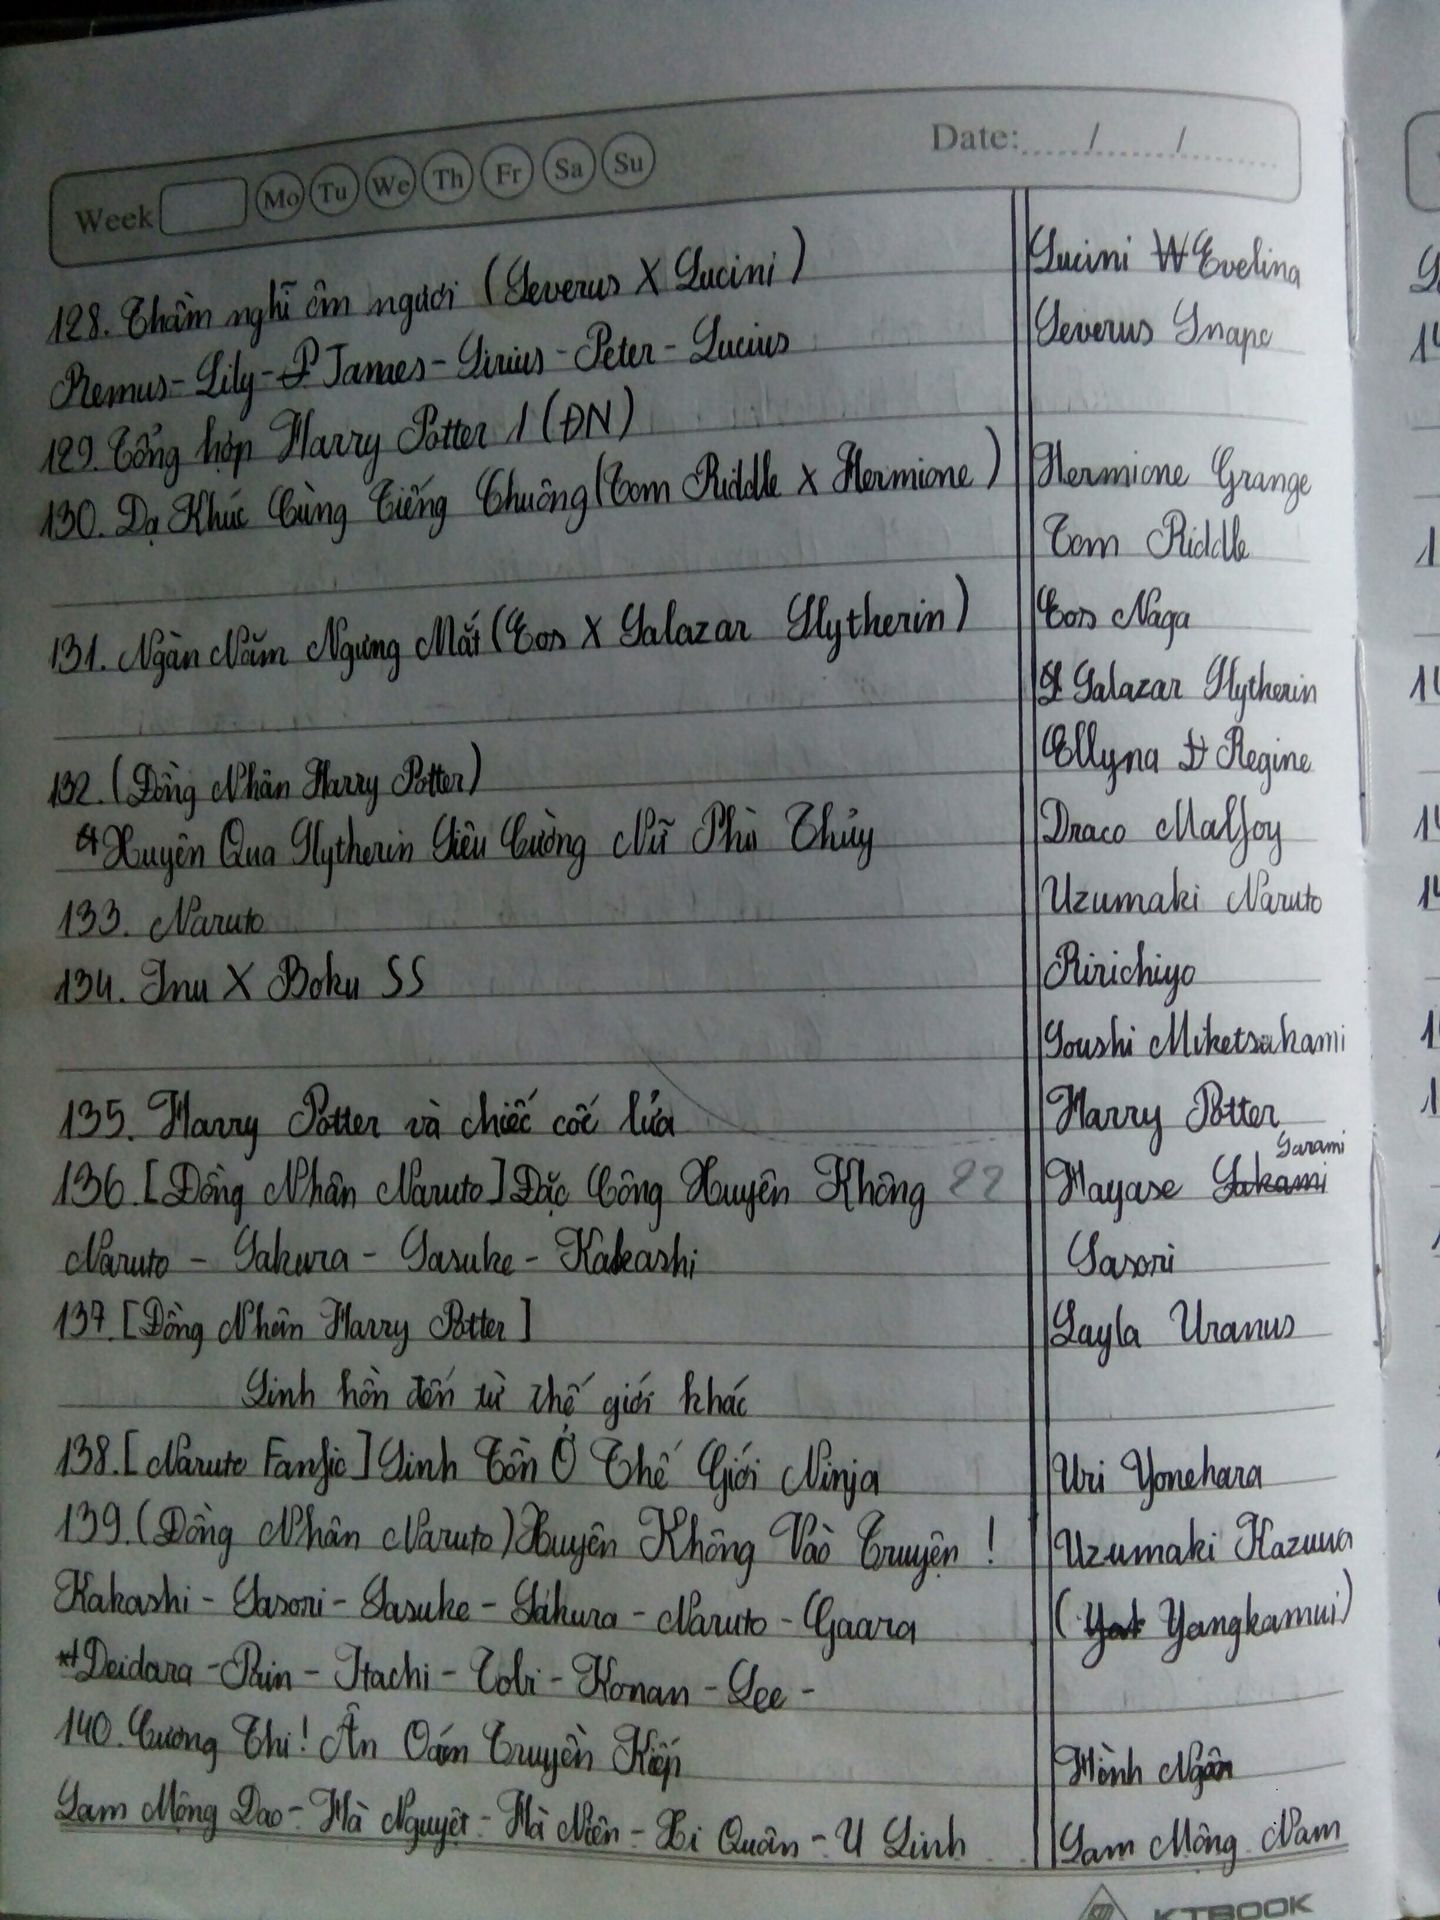 Week Mo Tu We Th Fr Sa Su Date:...../....../.........
128. Thầm nghĩ ôm ngươi (Severus X Lucini) Lucini Evelina
Remus - Lily - James - Sirius - Peter - Lucius Severus Snape
129. Tổng hợp Harry Potter 1 (ĐN)
130. Dạ Khúc Cùng Tiếng Chuông (Tom Riddle X Hermione) Hermione Grange
Tom Riddle
131. Ngàn Năm Ngưng Mắt (Eos X Salazar Slytherin) Eos Naga
Salazar Slytherin
132. (Đồng Nhân Harry Potter) Ellyna Regine
Xuyên Qua Slytherin Siêu Cường Nữ Phù Thủy Draco Malfoy
133. Naruto Uzumaki Naruto
134. Inu X Boku SS Ririchiyo
Soushi Miketsukami
135. Harry Potter và chiếc cốc lửa Harry Potter
136. [Đồng Nhân Naruto] Đặc Công Xuyên Không 22 Hayase Sarami
Naruto - Sakura - Sasuke - Kakashi Sasori
137. [Đồng Nhân Harry Potter] Layla Uranus
Linh hồn đến từ thế giới khác
138. [Naruto Fanfic] Sinh Tồn Ở Thế Giới Ninja Uri Yonehara
139. (Đồng Nhân Naruto) Xuyên Không Vào Truyện! Uzumaki Kazuwa
Kakashi - Sasori - Sasuke - Sakura - Naruto - Gaara (Yangkamui)
Deidara - Pain - Itachi - Tobi - Konan - Lee -
140. Cương Thi! Ân Oán Truyền Kiếp Hình Ngân
Lam Mộng Dao - Hà Nguyệt - Hà Niên - Xi Quân - U Linh Lam Mộng Nam
KTBOOK